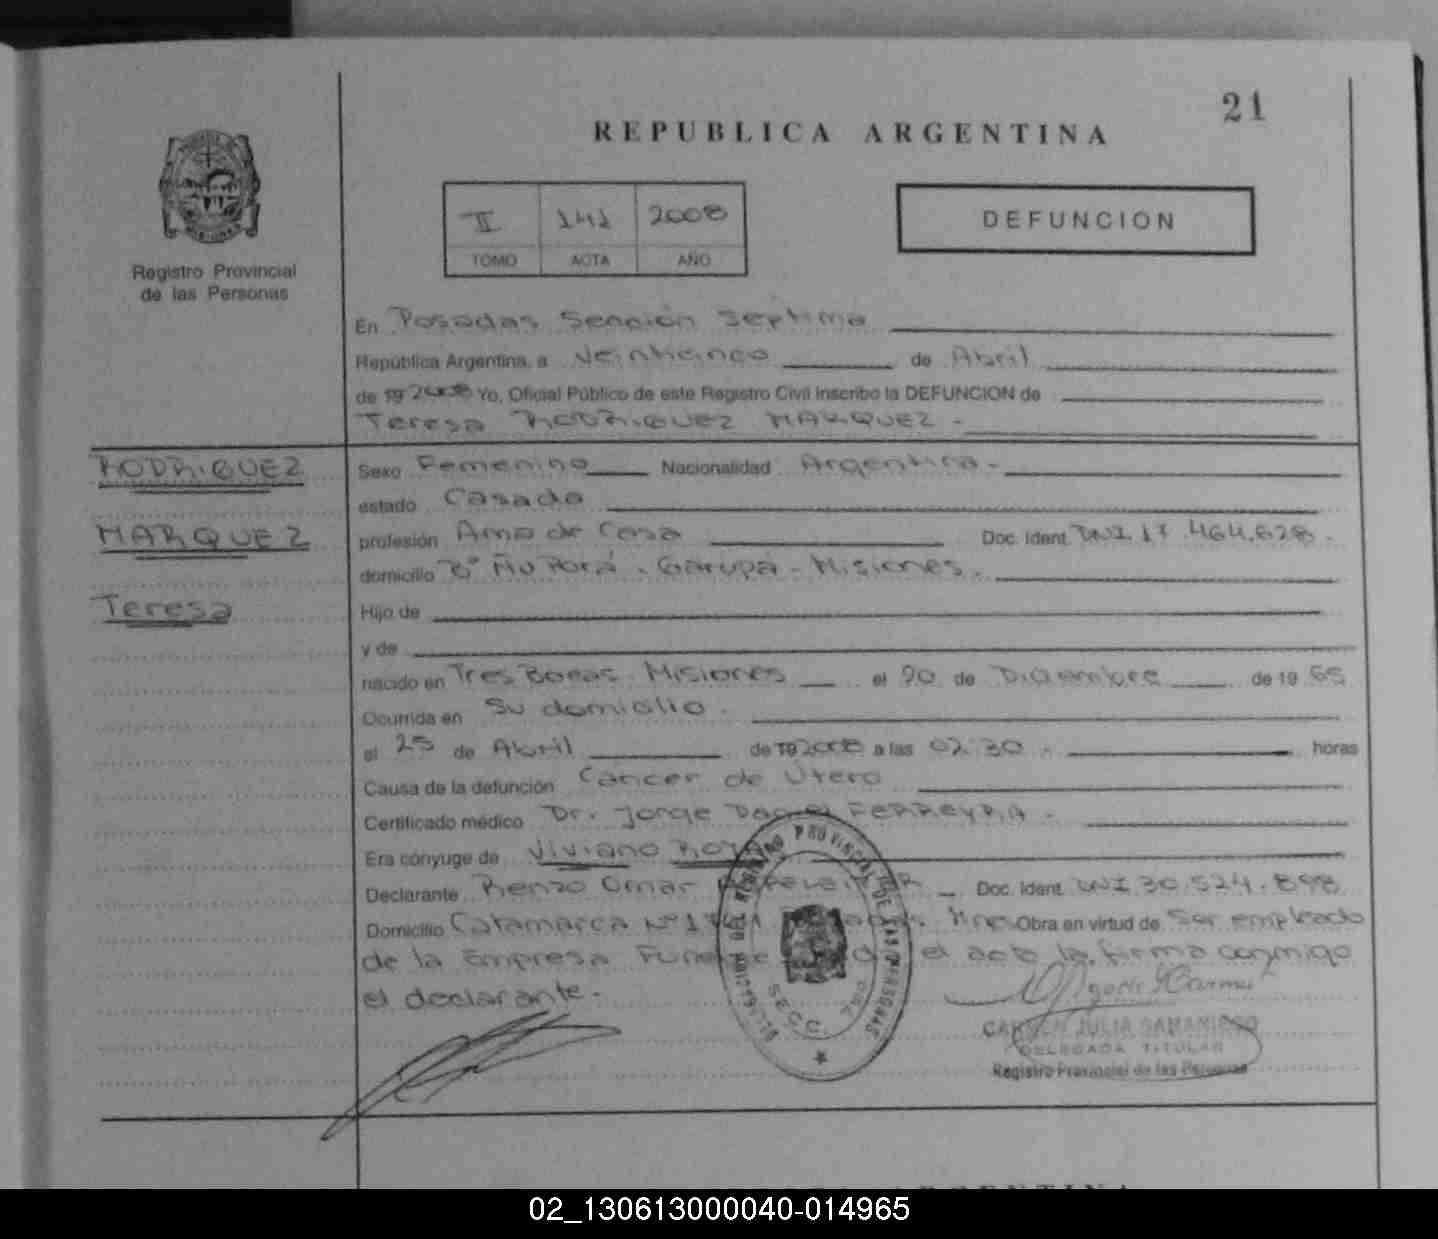 21
REPUBLICA ARGENTINA
MISIONES
Registro Provincial
de las Personas
II 141 2008
TOMO ACTA AÑO
DEFUNCION
En Posadas Sección Septima
República Argentina, a Veinticinco de Abril
de 19 2008 Yo, Oficial Público de este Registro Civil inscribo la DEFUNCION de
Teresa RODRIGUEZ MARQUEZ.-
RODRIGUEZ
MARQUEZ
Teresa
Sexo Femenino Nacionalidad Argentina.-
estado Casada
profesión Ama de Casa Doc. Ident. DNI 17.464.628.
domicilio B° Ñu Porá. Garupá - Misiones.
Hijo de
y de
nacido en Tres Bocas. Misiones el 20 de Diciembre de 19 65
Ocurrida en Su domicilio.
el 25 de Abril de 19 2008 a las 02:30 horas
Causa de la defunción Cáncer de Útero
Certificado médico Dr. Jorge Daniel FERREYRA.
Era cónyuge de Viviano
Declarante Renzo Omar Doc. Ident. DNI 30.524.898
Domicilio Catamarca N° Mnes Obra en virtud de Ser empleado
de la Empresa el acta la firma conmigo
el declarante.-
DEL REGISTRO PROVINCIAL DE LAS PERSONAS
SECC. 7
CARMEN JULIA SAMANIEGO
DELEGADA TITULAR
Registro Provincial de las Personas
02_130613000040-014965